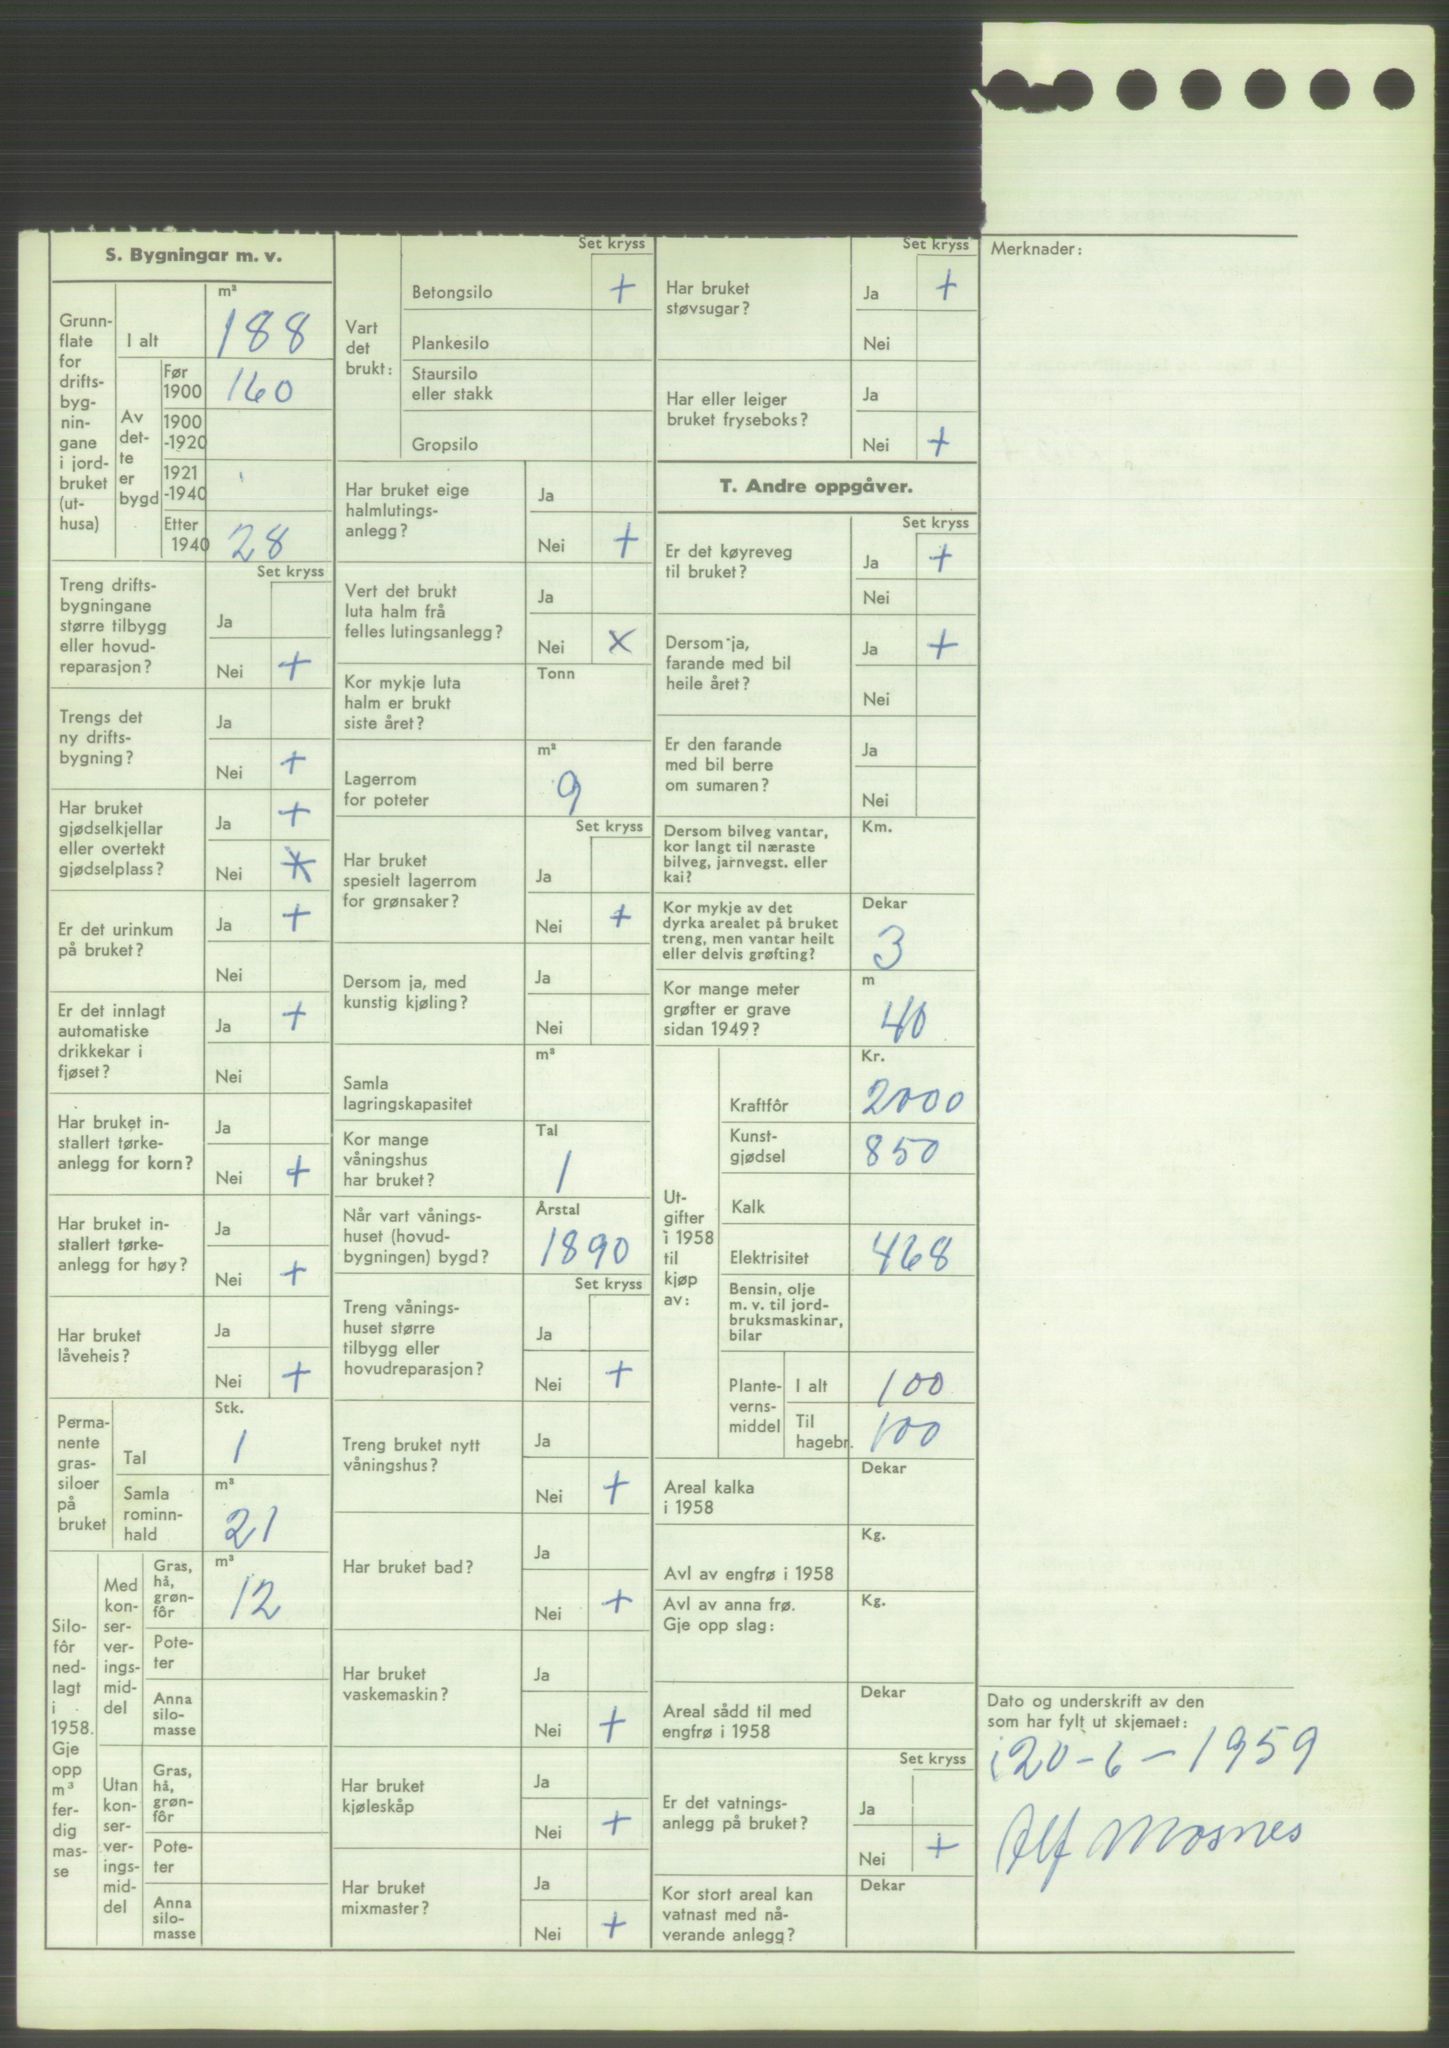 S. Bygningar m. v.
Grunn-
flate
for
drifts-
byg-
nin-
gane
i jord-
bruket
(ut-
husa)
I alt
m²
188
Av
det-
te
er
bygd
Før
1900
160
1900
-1920
1921
-1940
Etter
1940
28
Set kryss
Treng drifts-
bygningane
større tilbygg
eller hovud-
reparasjon?
Ja
Nei +
Trengs det
ny drifts-
bygning?
Ja
Nei +
Har bruket
gjødselkjellar
eller overtekt
gjødselplass?
Ja +
Nei
Er det urinkum
på bruket?
Ja +
Nei
Er det innlagt
automatiske
drikkekar i
fjøset?
Ja +
Nei
Har bruket in-
stallert tørke-
anlegg for korn?
Ja
Nei +
Har bruket in-
stallert tørke-
anlegg for høy?
Ja
Nei +
Har bruket
låveheis?
Ja
Nei +
Perma-
nente
gras-
siloer
på
bruket
Stk.
Tal 1
Samla
rominn-
hald
m³
21
Silo-
fôr
ned-
lagt
i
1958.
Gje
opp
m³
fer-
dig
mas-
se
Med
kon-
ser-
ver-
ings-
mid-
del
Gras,
hå,
grøn-
fôr
m³
12
Pote-
ter
Anna
silo-
masse
Utan
kon-
ser-
ver-
ings-
mid-
del
Gras,
hå,
grøn-
fôr
Pote-
ter
Anna
silo-
masse
Vart
det
brukt:
Set kryss
Betongsilo +
Plankesilo
Staursilo
eller stakk
Gropsilo
Har bruket eige
halmlutings-
anlegg?
Ja
Nei +
Vert det brukt
luta halm frå
felles lutingsanlegg?
Ja
Nei x
Kor mykje luta
halm er brukt
siste året?
Tonn
Lagerrom
for poteter
m²
9
Set kryss
Har bruket
spesielt lagerrom
for grønsaker?
Ja
Nei +
Dersom ja, med
kunstig kjøling?
Ja
Nei
Samla
lagringskapasitet
m³
Kor mange
våningshus
har bruket?
Tal
1
Når vart vånings-
huset (hovud-
bygningen) bygd?
Årstal
1890
Set kryss
Treng vånings-
huset større
tilbygg eller
hovudreparasjon?
Ja
Nei +
Treng bruket nytt
våningshus?
Ja
Nei +
Har bruket bad?
Ja
Nei +
Har bruket
vaskemaskin?
Ja
Nei +
Har bruket
kjøleskåp
Ja
Nei +
Har bruket
mixmaster?
Ja
Nei +
Set kryss
Har bruket
støvsugar?
Ja +
Nei
Har eller leiger
bruket fryseboks?
Ja
Nei +
T. Andre oppgåver.
Set kryss
Er det køyreveg
til bruket?
Ja +
Nei
Dersom ja,
farande med bil
heile året?
Ja +
Nei
Er den farande
med bil berre
om sumaren?
Ja
Nei
Dersom bilveg vantar,
kor langt til næraste
bilveg, jarnvegst. eller
kai?
Km.
Kor mykje av det
dyrka arealet på bruket
treng, men vantar heilt
eller delvis grøfting?
Dekar
3
Kor mange meter
grøfter er grave
sidan 1949?
m
40
Ut-
gifter
i 1958
til
kjøp
av:
Kr.
Kraftfôr 2000
Kunst-
gjødsel 850
Kalk
Elektrisitet 468
Bensin, olje
m. v. til jord-
bruksmaskinar,
bilar
Plante-
verns-
middel
I alt 100
Til
hagebr. 100
Areal kalka
i 1958
Dekar
Avl av engfrø i 1958
Kg.
Avl av anna frø.
Gje opp slag:
Kg.
Areal sådd til med
engfrø i 1958
Dekar
Set kryss
Er det vatnings-
anlegg på bruket?
Ja
Nei +
Kor stort areal kan
vatnast med nå-
verande anlegg?
Dekar
Merknader:
Dato og underskrift av den
som har fylt ut skjemaet:
20-6-1959
Alf Mosnes